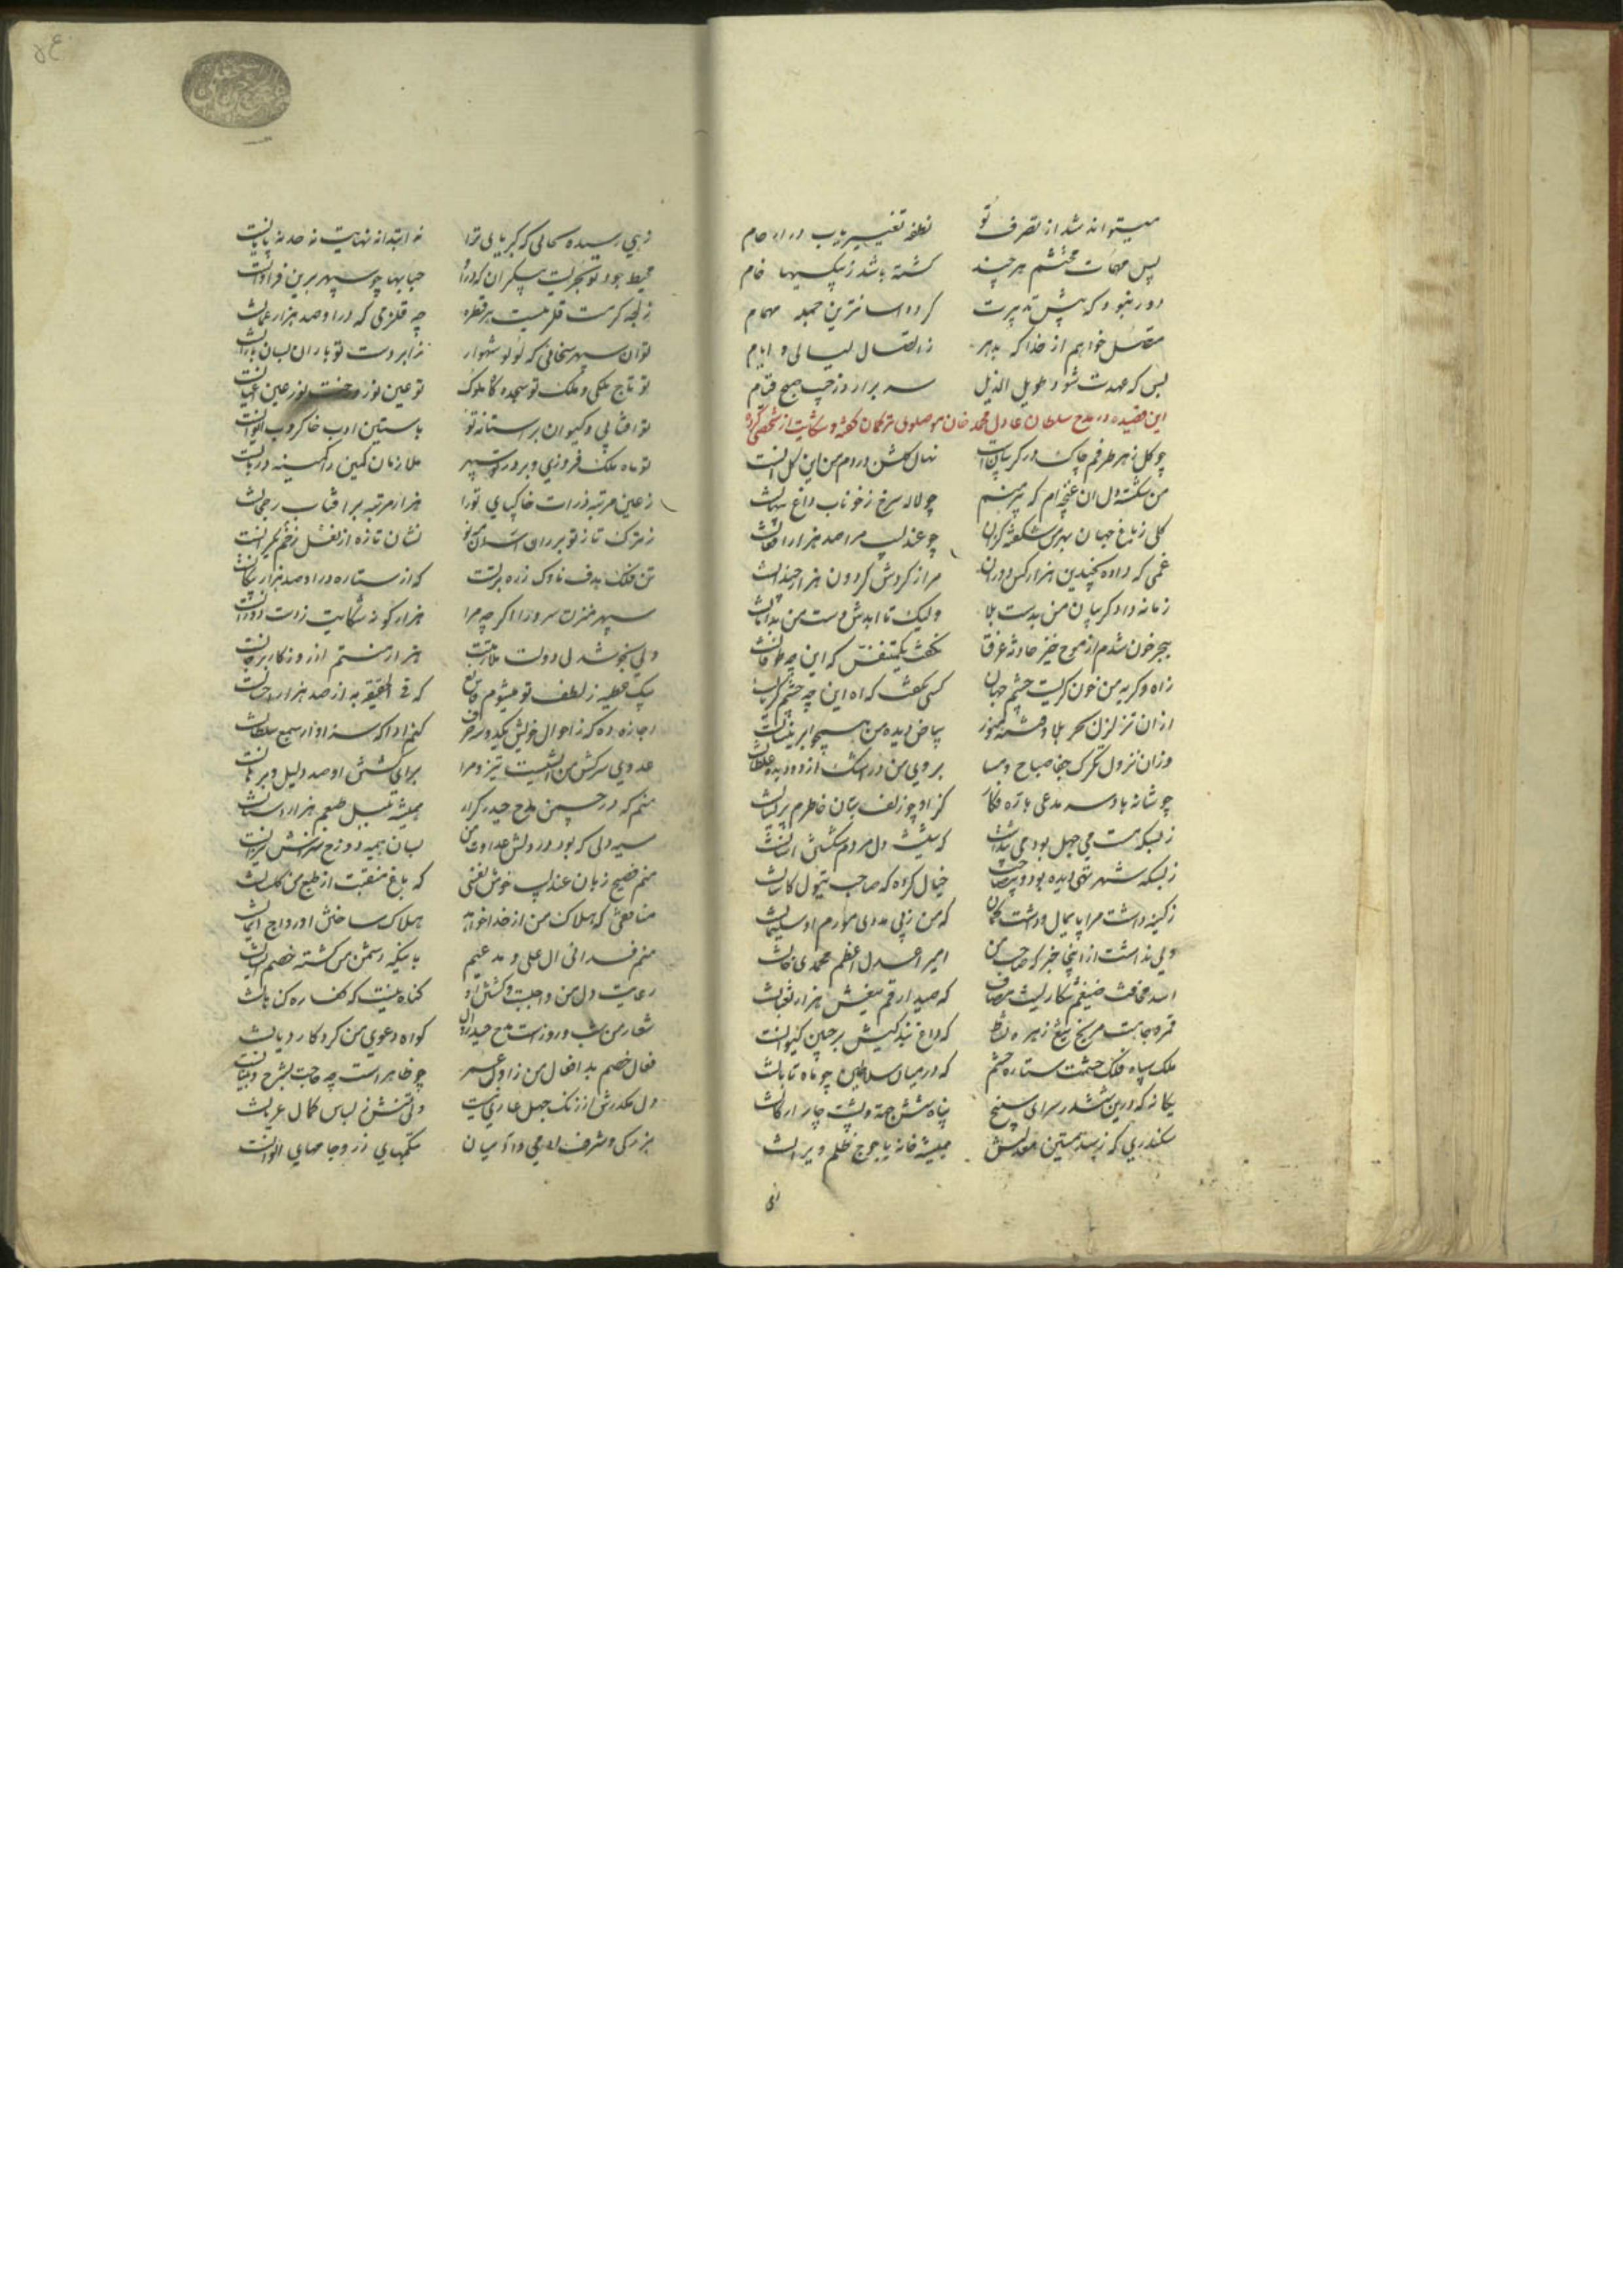 میتواند شد از تصرف تو نطفه تغییر یاب در ارحام
پس مهمات محتشم هر چند گشته باشد ز پیکسیها خام
دور نبود که پیش تدبیرت گردد اسانترین جمله مهام
متصل خواهم از خدا که بدهر ز اتصال لیالی و ایام
بس که عهدت شود طویل الذیل سر برارد ز جیب صبح قیام
این قصیده در مدح سلطان عادل محمد خان موصلوی ترکمان گفته و شکایت از شخصی کرده
چو گل ز هر طرفم چاک در گریبانست نهال گلشن دردم من این گل انست
من شکسته دل ان غنچه ام که پیرهنم چو لاله سرخ ز خوناب داغ پنهانست
گلی ز باغ جهان بهر من شکفته کزان چو عندلیب مرا صد هزار افغانست
غمی که داده بچندین هزار کس دوران مرا ز گردش گردون هزار چندانست
زمانه داد گریبان من بدست بلا ولیک تا ابدش دست من بدامانست
ببحر خون شدم از موج خیز حادثه غرق نگفت یکمتنفس که این چه طوفانست
ز اه و گریه من خون گریست چشم جهان کسی نگفت که اه این چه چشم گریانست
از ان تزلزل بحر بلا و چشمه هنوز بیاض دیده من همچو ابر نیسانست
وزان نزول تگرگ جفا صباح و مسا بروی من در اشک از دو دیده غلطانست
چو شانه با دو سه مدعی با اره فگار کز او چو زلف بتان خاطرم پریشانست
ز بسکه مست می جهل بود می پنداشت که بیشتر دل مردم شکستن اسانست
ز بسکه شهر تهی دیده بود و بیصاحب خیال کرده که صاحب تیول کاشانست
ز کینه داشت مرا پایمال و داشت گمان که من ز پی مددی مورم او سلیمانست
ولی نداشت از اینجا خبر که صاحب من امیر اعدل اعظم محمدی خانست
اسد مخافت ضیغم شکار لیث مصاف که صید ارقم تیغش هزار ثعبانست
قمر وجاهت مریخ تیغ زهره نشاط که داغ بندگیش بر جبین کیوانست
ملک سپاه فلک حشمت ستاره حشم که در میان سلاطین چو ماه تابانست
یگانه که درین ششدر سرای سپنج پناه شش جهة و پشت چار ارکانست
سکندری که ز سد متین معدلتش همیشه خانه یاجوج ظلم ویرانست
زهی رسیده بجائی که کبریائی ترا نه ابتدا نه نهایت نه حد نه پایانست
محیط جود تو بحریست بیکران که درو حبابها چو سپهر برین فراوانست
ز لجه کرمت قلزمیست هر قطره چه قلزمی که درا و صد هزار عمانست
تو ان سپهر سخائی که لولو شهوار ز ابر دست تو باران بسان بارانست
تو تاج ملکی و ملک تو سجده گاه ملوک تو عین نور و رخت نور عین اعیانست
تو افتابی و کیوان بر استانه تو باستین ادب خاکروب ایوانست
تو ماه ملک فروزی و بر درت سپهر ملازمان کمین را کمینه دربانست
ز عین مرتبه ذرات خاکپای تورا هزار مرتبه بر افتاب رجحانست
ز ترک تاز تو بر روی اسمان هنوز نشان تازه از نعل زخم یکرانست
تن فلک هدف ناوک زره بر تست که از ستاره درا و صد هزار پیکانست
سپهر منزلت سرورا اگر چه مرا هزار گونه شکایت ز دست دورانست
ولی بخوشدلی دولت ملازمتت هزار منتم از روزگار بر جانست
بیک عطیه ز لطف تو میشوم قانع که فی الحقیقه به از صد هزار احسانست
اجازه ده که ز احوال خویش یکدو سه حرف کنم ادا که سزاوار سمع سلطانست
عدوی سرکش من اتشیست تیز و مرا برای کشتن او صد دلیل و برهانست
منم که در چمن مدح حیدر کرار همیشه بلبل طبعم هزار دستانست
سیه دلی که بود در دلش عداوت من بسان هیمه دوزخ سزاش نیرانست
منم فصیح زبان عندلیب خوش نغمی که باغ منقبت از طبع من گلستانست
منافقی که هلاک من از خدا خواهد هلاک ساختن او رواج ایمانست
منم فدائی ال علی و مدعیم باینکه دشمن من گشته خصم ایشانست
رعایت دل من واجبست و کشتن او گناه نیست که کفاره گناهانست
شعار من شب و روز است مدح حیدر و ال گواه دعوی من کردگار دیانست
فعال خصم بد افعال من ز اول عمر چو ظاهر است چه حاجت بشرح و تبیانست
دل مکدرش از زنگ جهل عاری نیست ولی تنش ز لباس کمال عریانست
بزرگی و شرف ادمی و ادمیان بتکمهای زر و جامهای الوانست